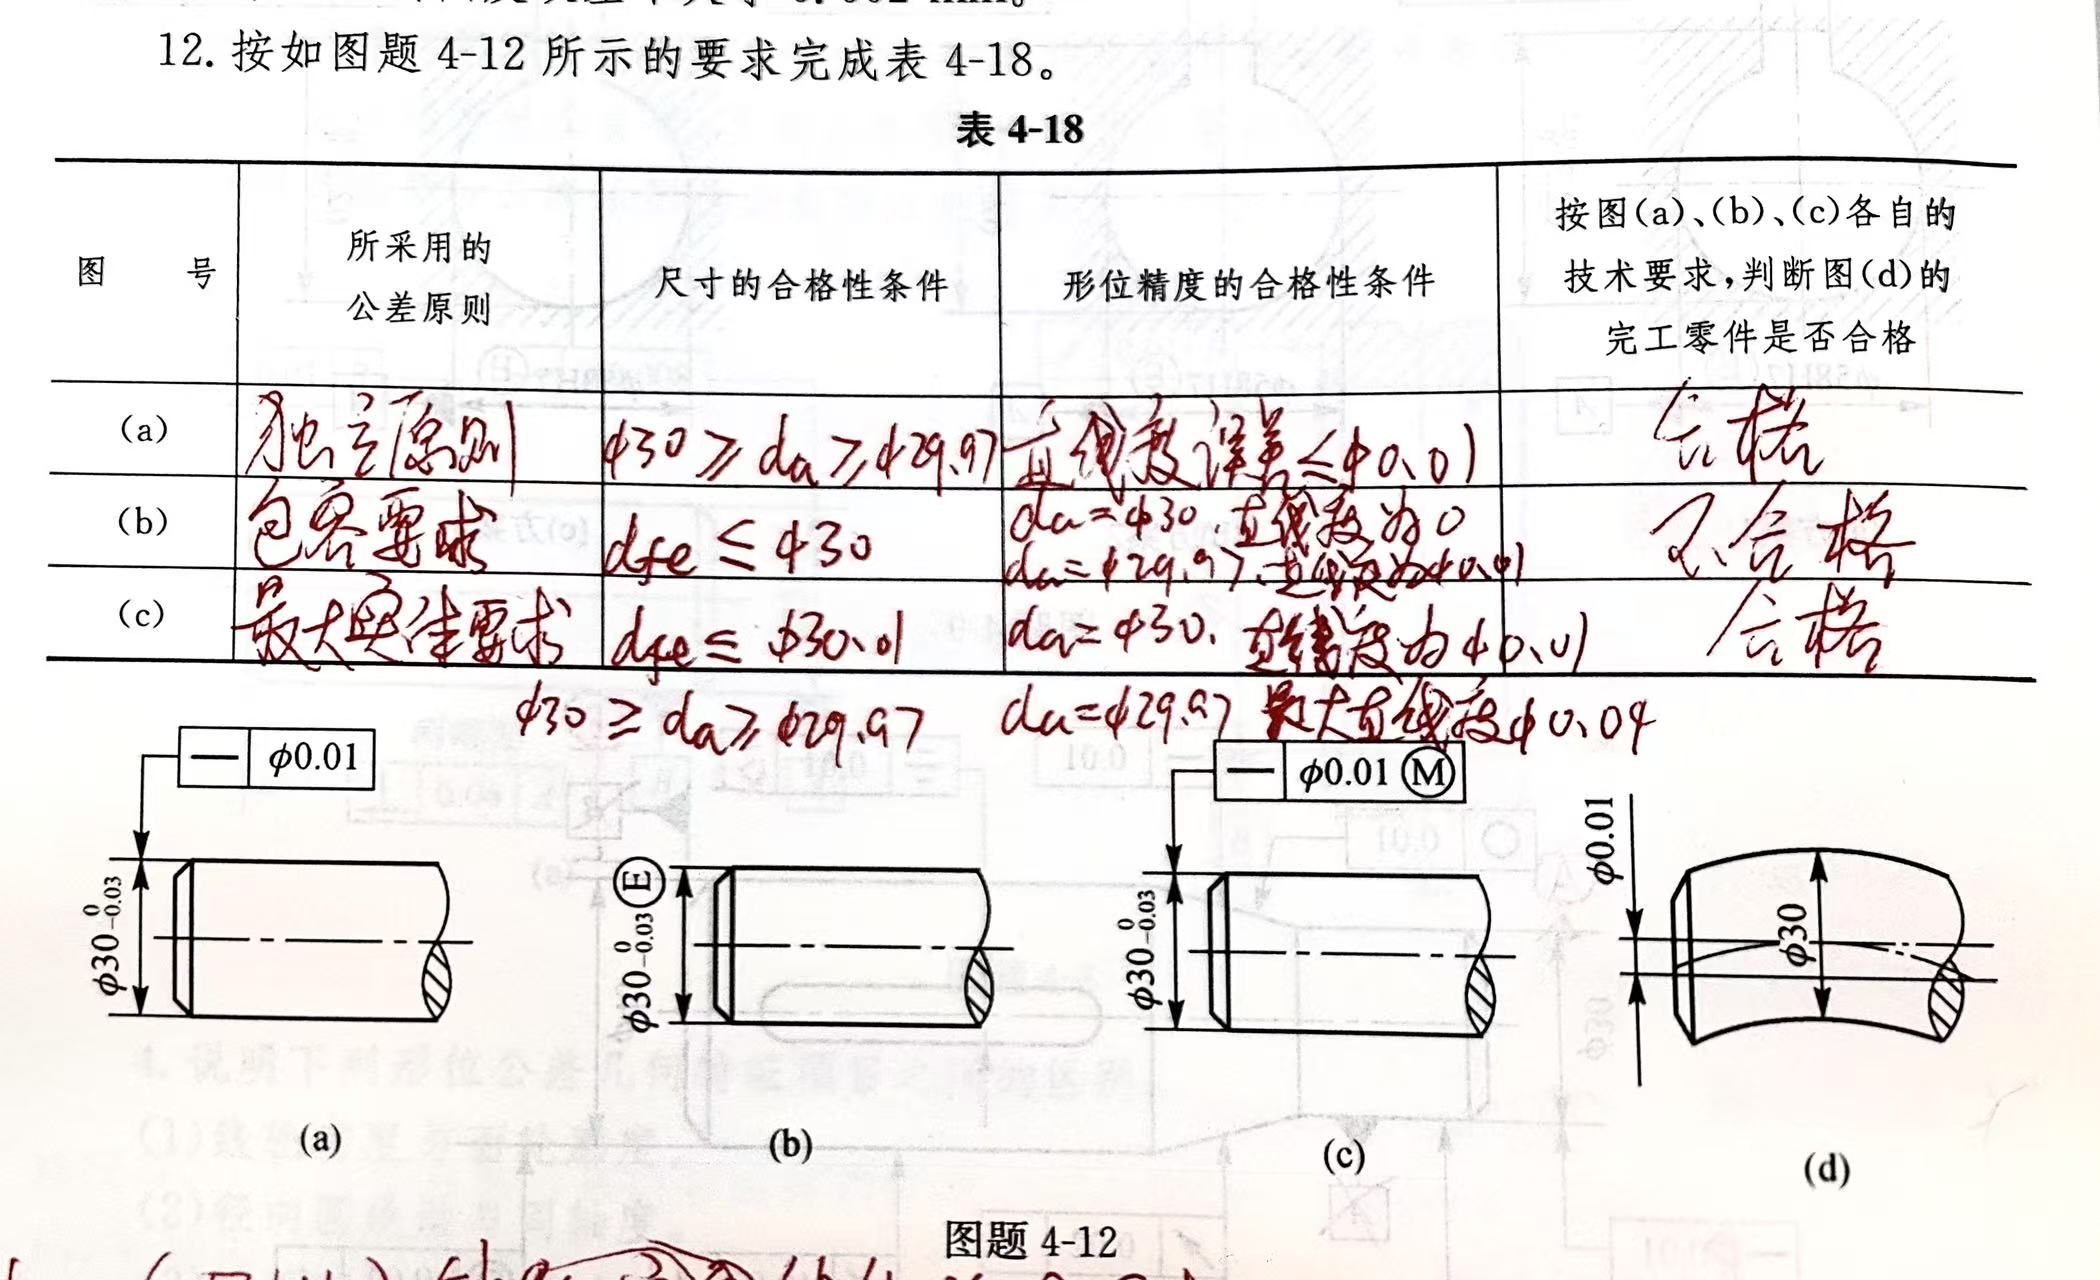 12. 按如图题 4-12 所示的要求完成表 4-18。
表 4-18
图 号
所采用的
公差原则
尺寸的合格性条件
形位精度的合格性条件
按图(a)、(b)、(c)各自的
技术要求,判断图(d)的
完工零件是否合格
(a)
独立原则
ϕ30 ≥ da ≥ ϕ29.97
直线度误差 ≤ ϕ0.01
合格
(b)
包容要求
dfe ≤ ϕ30
da = ϕ30. 直线度为0
da = ϕ29.97. 直线度为ϕ0.01
不合格
(c)
最大实体要求
dfe ≤ ϕ30.01
da = ϕ30. 直线度为ϕ0.01
合格
ϕ30 ≥ da ≥ ϕ29.97
da = ϕ29.97 最大直线度ϕ0.04
— ϕ0.01
ϕ30 0 -0.03
(a)
ϕ30 0 -0.03 Ⓔ
(b)
— ϕ0.01 Ⓜ
ϕ30 0 -0.03
(c)
ϕ0.01
ϕ30
(d)
图题 4-12